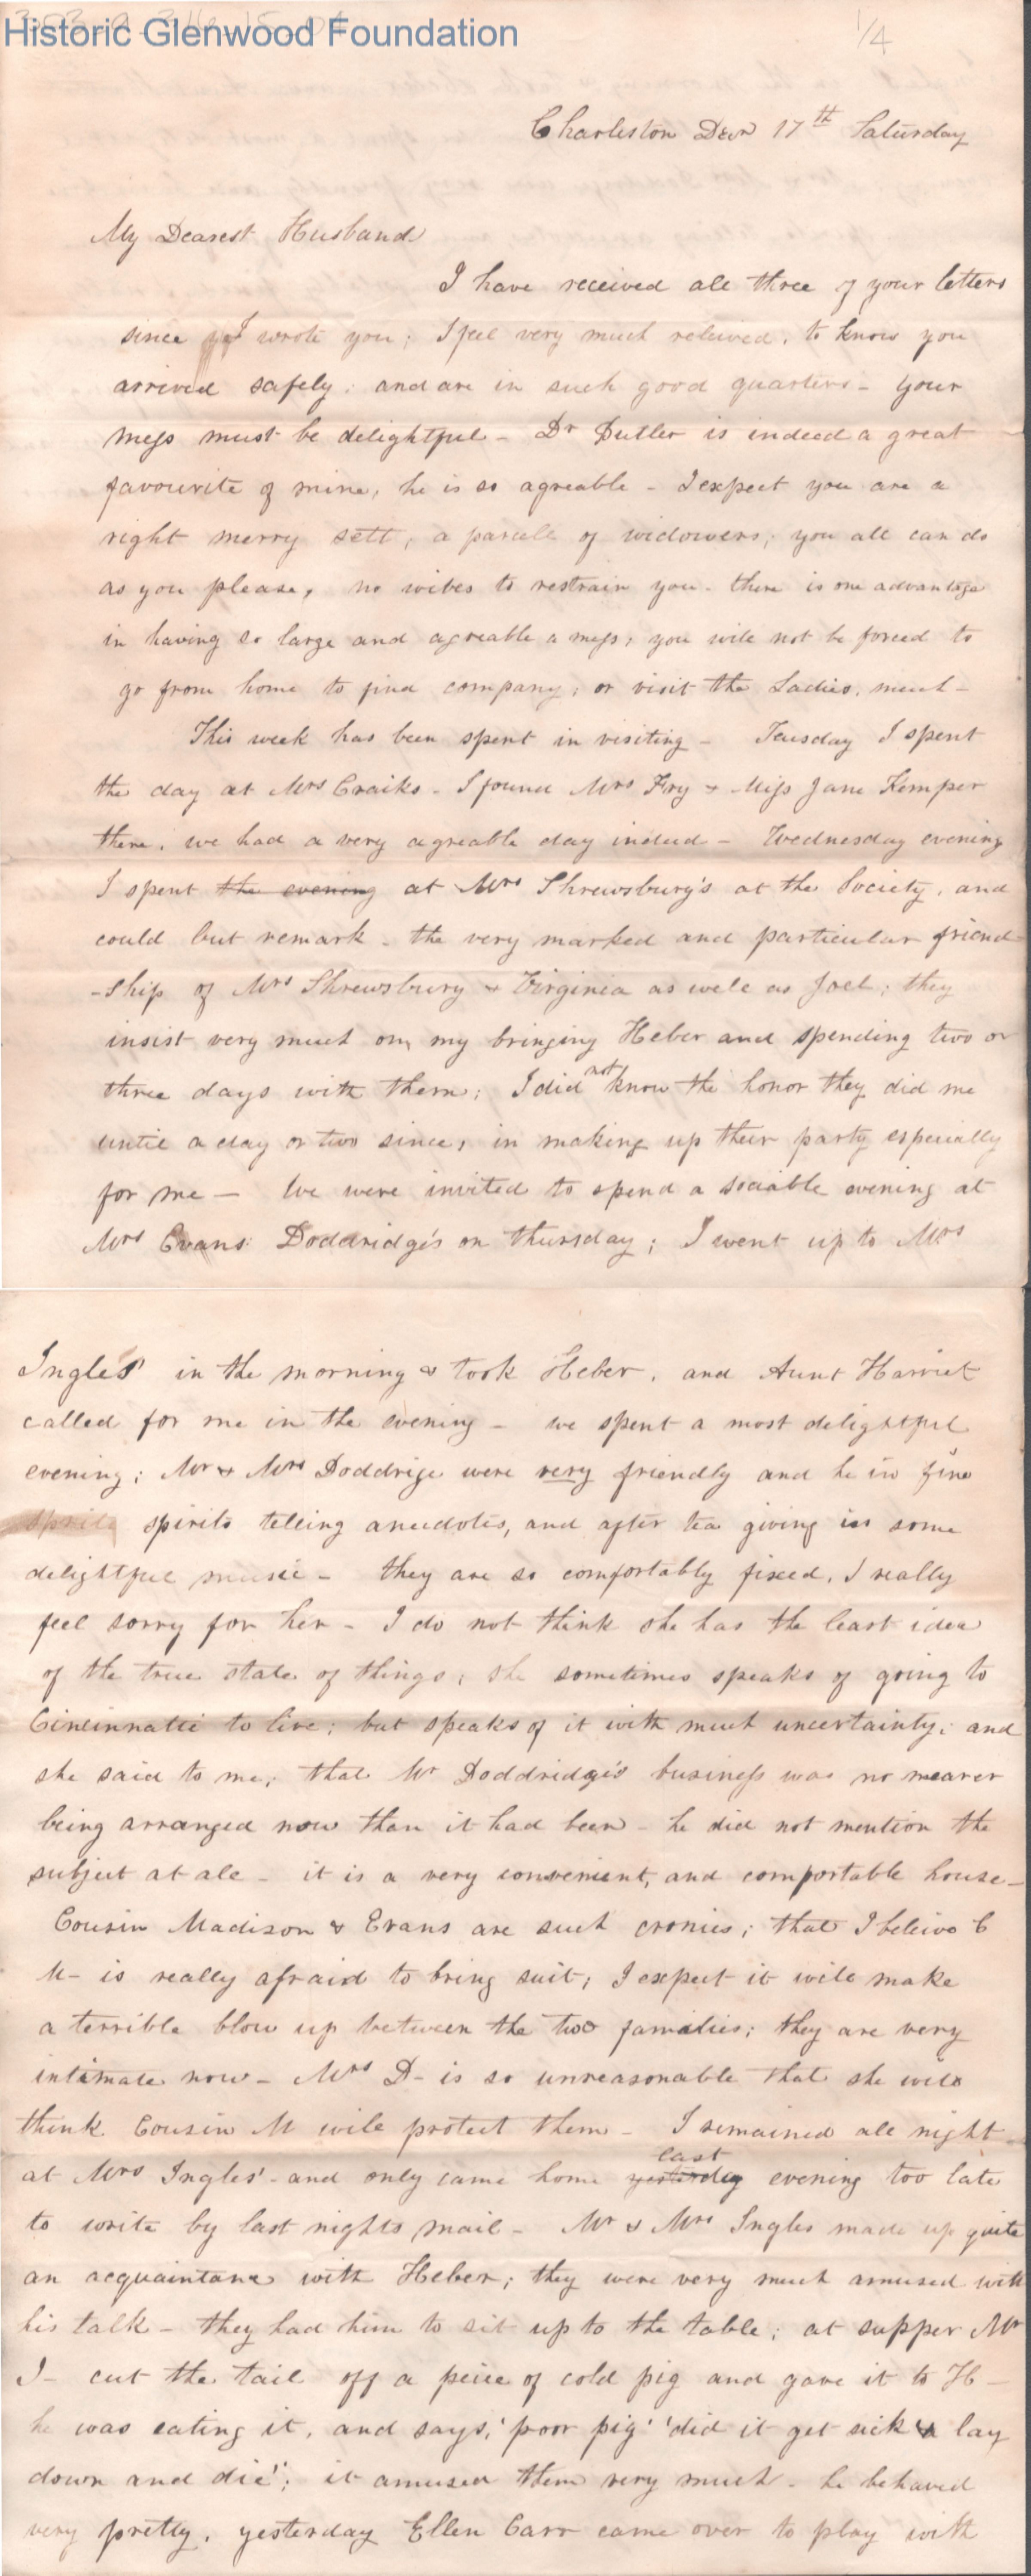 Historic Glenwood Foundation
1/4
Charleston Decr 17th Saturday
My Dearest Husband
I have received all three of your letters
since I wrote you; I feel very much releived, to know you
arrived safely; and are in such good quarters - your
mess must be delightful - Dr Butler is indeed a great
favourite of mine, he is so agreable - I expect you are a
right merry sett, a parcele of widowers; you all can do
as you please, no wives to restrain you. there is one advantage
in having so large and agreable a mess, you will not be forced to
go from home to find company, or visit the Ladies, much -
This week has been spent in visiting - Teusday I spent
the day at Mrs Craiks - I found Mrs Fry & Miss Jane Kemper
there, we had a very agreable day indeed - Wednesday evening
I spent the evening at Mrs Shrewsbury's at the Society, and
could but remark - the very marked and particular friend
-ship of Mrs Shrewsbury & Virginia as well as Joel; they
insist very much on my bringing Heber and spending two or
three days with them; I did not know the honor they did me
until a day or two since, in making up their party especially
for me - We were invited to spend a sociable evening at
Mrs Evans Doddridge's on thursday; I went up to Mrs
Ingles' in the morning & took Heber, and Aunt Harriet
called for me in the evening - we spent a most delightful
evening; Mr & Mrs Doddrige were very friendly and he in fine
sprits spirits telling anecdotes, and after tea giving us some
delightful music - they are so comfortably fixed, I really
feel sorry for her - I do not think she has the least idea
of the true state of things, she sometimes speaks of going to
Cincinnatti to live; but speaks of it with much uncertainty; and
she said to me, that Mr Doddridge's business was no nearer
being arranged now than it had been - he did not mention the
subject at all - it is a very convenient, and comfortable house -
Cousin Madison & Evans are such cronies; that I beleive C
M - is really afraid to bring suit; I expect it will make
a terrible blow up between the two families; they are very
intimate now - Mrs D - is so unreasonable that she will
think Cousin M will protect them - I remained all night
at Mrs Ingles' - and only came home yesterday last evening too late
to write by last nights mail - Mr & Mrs Ingles made up quite
an acquaintance with Heber; they were very much amused with
his talk - they had him to sit up to the table; at supper Mr
I - cut the tail off a peice of cold pig and gave it to H -
he was eating it, and says, 'poor pig' 'did it get sick & lay
down and die'; it amused them very much - he behaved
very pretty, yesterday Ellen Carr came over to play with